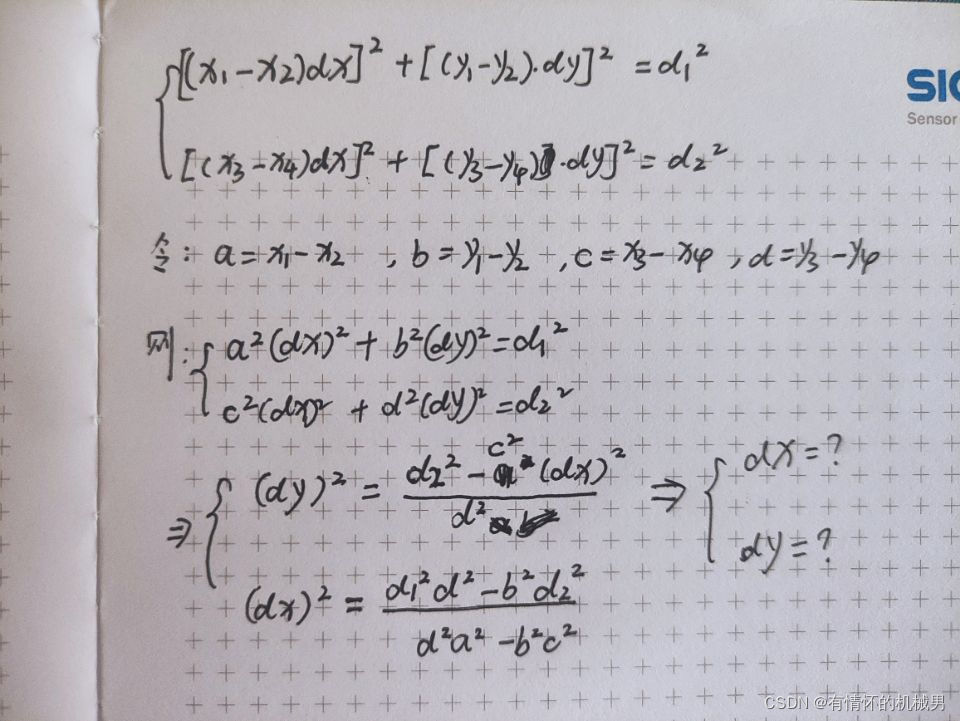 [(x₁-x₂)dx]² + [(y₁-y₂)·dy]² = d₁²
SIC
Sensor
[(x₃-x₄)dx]² + [(y₃-y₄)·dy]² = d₂²
令: a=x₁-x₂ , b=y₁-y₂ , c=x₃-x₄ , d=y₃-y₄
则: a²(dx)² + b²(dy)² = d₁²
c²(dx)² + d²(dy)² = d₂²
⇒ (dy)² = (d₂² - c²(dx)²) / d² ⇒ dx=?
dy=?
(dx)² = (d₁²d² - b²d₂²) / (d²a² - b²c²)
CSDN @有情怀的机械男